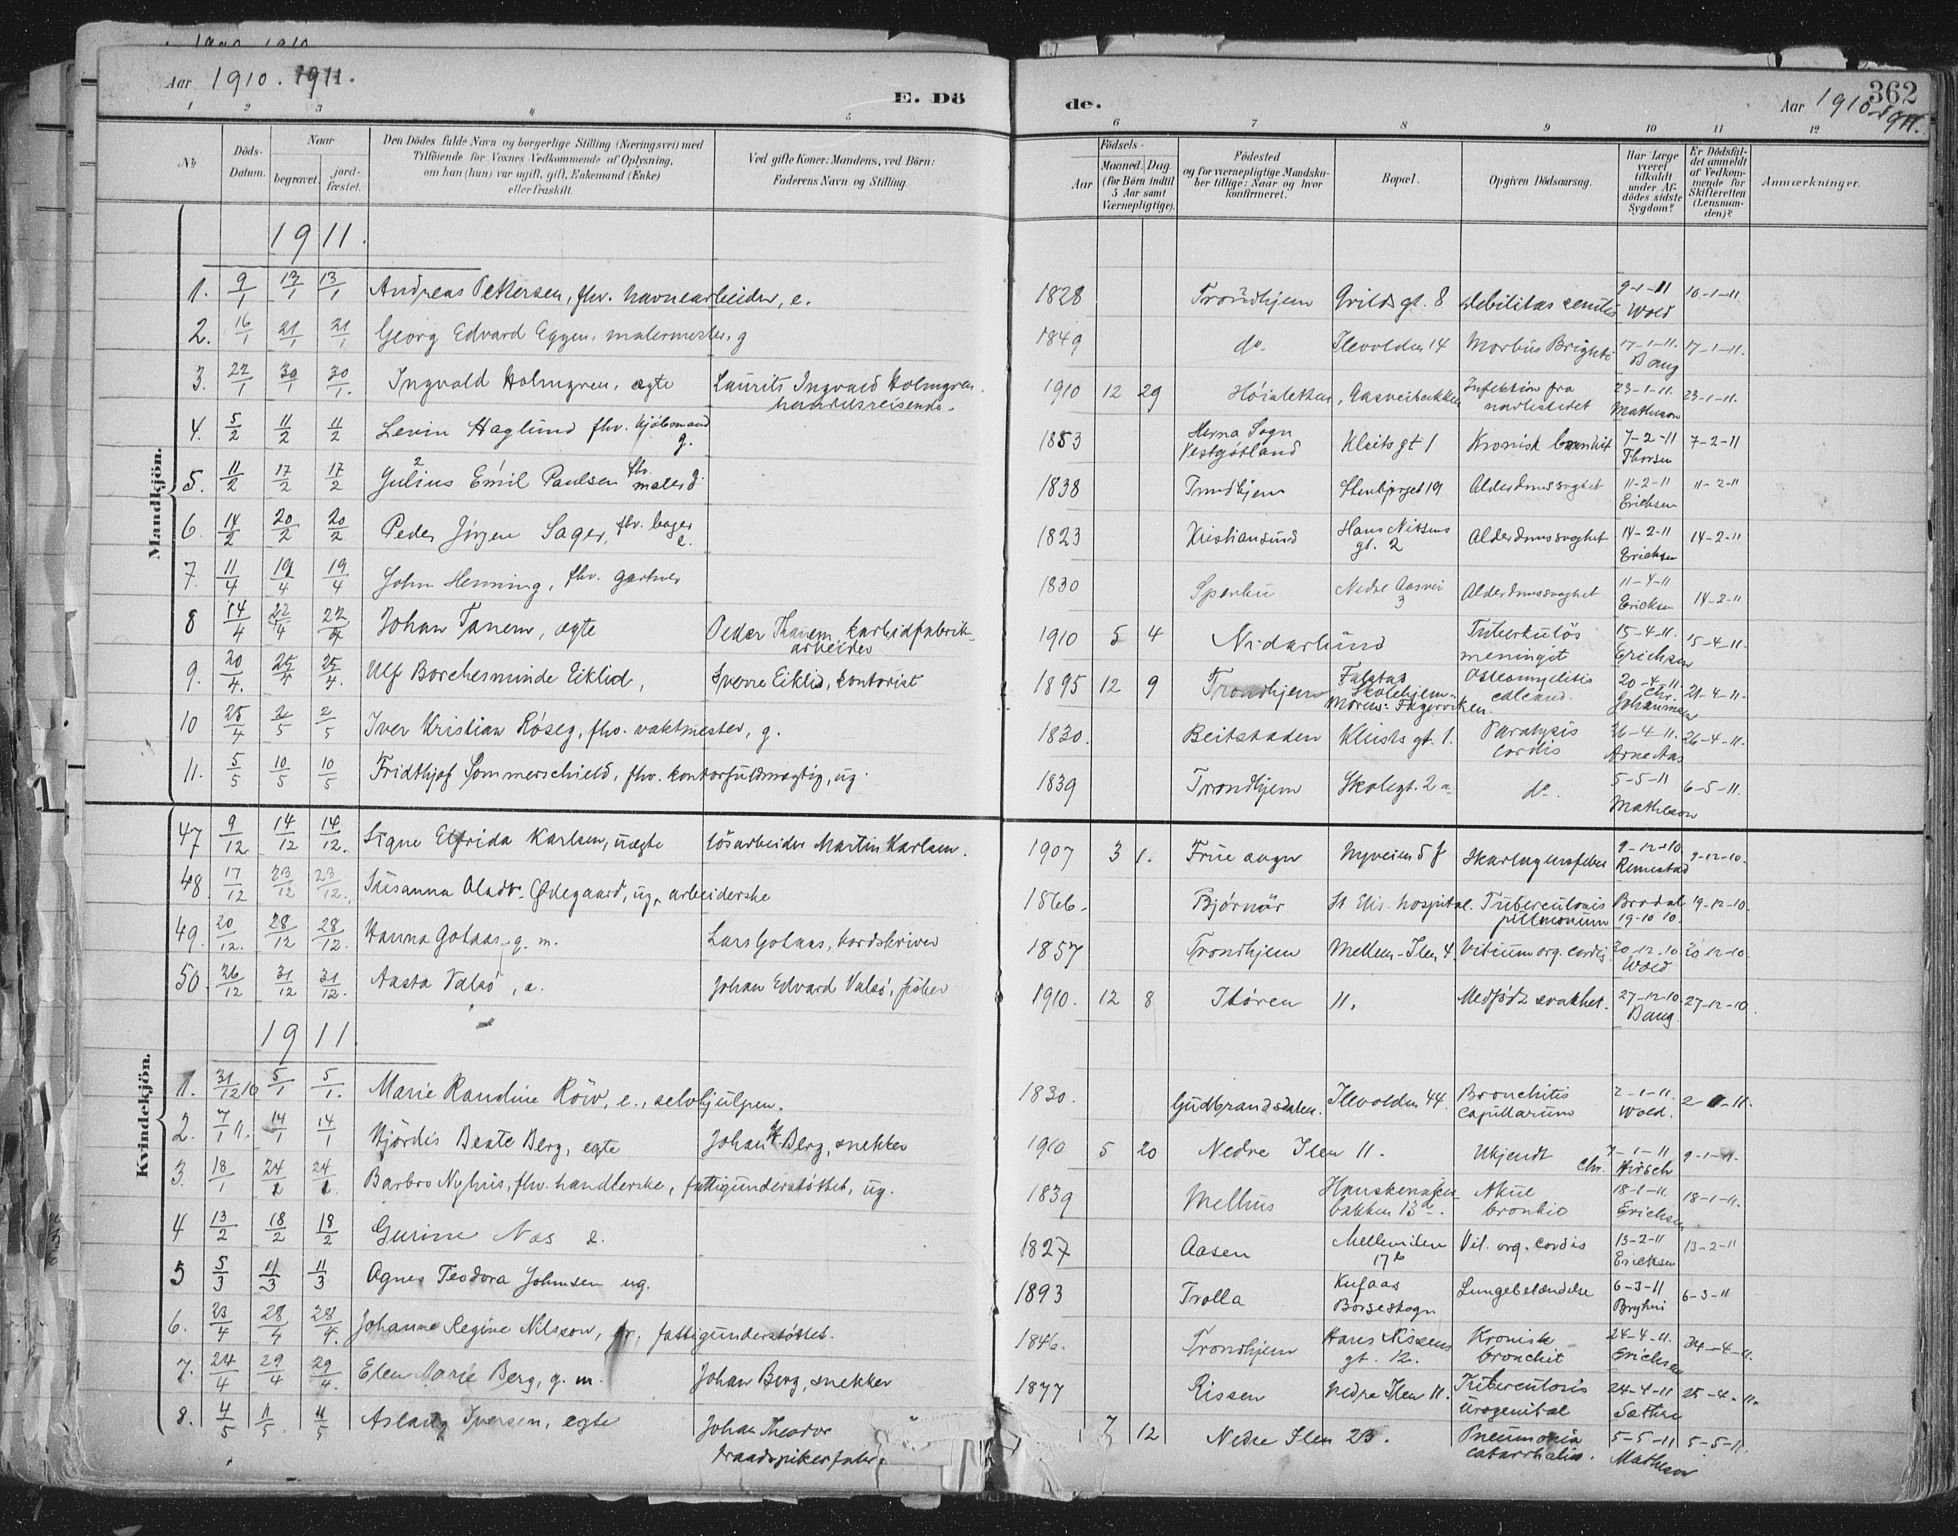 Aar 1910. 1911.
E. Dö
de.
362
Aar 1910-1911.
1 2 3 4 5 6 7 8 9 10 11 12
No
Döds-Datum.
Naar
begravet.
jord-fæstet.
Den Dödes fulde Navn og borgerlige Stilling (Næringsvei) med
Tilföiende for Voxnes Vedkommende af Oplysning,
om han (hun) var ugift, gift, Enkemand (Enke)
eller fraskilt.
Ved gifte Koner: Mandens, ved Börn:
Faderens Navn og Stilling.
Födsels-
Aar Maaned. Dag.
(for Börn indtil
5 Aar samt
Værnepligtige).
Födested
og for værnepligtige Mandskaber tillige: Naar og hvor
konfirmeret.
Bopæl.
Opgiven Dödsaarsag.
Har Læge været tilkaldt under Afdödes sidste Sygdom?
Er Dödsfaldet anmeldt af Vedkommende for Skifteretten (Lensmanden)?
Anmærkninger.
Mandkjön.
1911.
1. 9/1 13/1 13/1 Andreas Pettersen, fhv. havnearbeider, e. 1828 Trondhjem Grilds gt. 8 debilitas senilis 9-1-11 Wold 10-1-11.
2. 16/1 21/1 21/1 Georg Edvard Eggen, malermester, g 1849 do. Ilevolden 14 Morbus Brighti 17-1-11. Bang 17-1-11.
3. 22/1 30/1 30/1. Ingvald Holmgren, ægte Laurits Ingvald Holmgren. handelsreisende. 1910 12 29 Høialetten, Aasveibakken Infektion fra navlestedet 23-1-11. Matheson 23-1-11.
4. 5/2 11/2 11/2 Levin Haglund fhv. kjøbmand g. 1853 Herna Sogn Vestgøtland Kleists gt 1 Kronisk bronkit 7-2-11 Thorsen 7-2-11
5. 11/2 17/2 17/2 Julius Emil Paulsen fhv. maler g. 1838 Trondhjem Stenbjerget 19 Alderdomssvaghet 11-2-11 Erichsen 11-2-11
6. 14/2 20/2 20/2 Peder Jörgen Sager, fhv. bager e. 1823 Kristiansund Hans Nissens gt. 2 Alderdomssvaghet 14-2-11 Erichsen 14-2-11
7. 11/4 19/4 19/4 John Henning, fhv. gartner 1830 Sparbu Nedre Aasvei 3 Alderdomssvaghet 11-4-11 Erichsen 14-2-11
8 14/4 22/4 22/4 Johan Tanem, ægte Peder Thanem, karbidfabrik-arbeider 1910 5 4 Nidarlund Tuberkuløs meningit 15-4-11. Erichsen 15-4-11.
9. 20/4. 25/4 25/4. Ulf Borchesminde Eiklid, Sverre Eiklid, kontorist 1895 12 9 Trondhjem Falstad Skolehjem. Osteomyelitis calcand. 20-4-11. Chr. Johannsen 21-4-11-
10 25/4 2/5 2/5 Iver Kristian Røseg, fhv. vaktmester, g. 1830. Beitstaden Kleists gt. 1. Paralysis cordis 26-4-11. Arne Aas 26-4-11.
11. 5/5 10/5 10/5 Fridthjof Sommerschield, fhv. kontorfuldmægtig, ug. 1839 Trondhjem Skolegt. 2 a do. 5-5-11 Matheson 6-5-11.
Kvindekjön.
47 9/12 14/12 14/12. Signe Elfrida Karlsen, uægte løsarbeider Martin Karlsen. 1907 3 1. Frue sogn Nyveien 5 f Skarlagensfeber 9-12-10 Rimestad 9-12-10.
48. 17/12 23/12 23/12. Susanna Oladr. Ødegaard, ug, arbeiderske 1866. Bjørnör St Elis. hospital. Tuberculosis pulmonum Bradal 19-10 10. 19-12-10.
49. 20/12. 28/12 28/12. Hanna Golaas, g. m. Lars Golaas, bordskriver 1857 Trondhjem Mellem-Ilen 4. Vitium org. cordis 20-12-10 Wold 20 12-10.
50. 26/12 31/12 31/12. Aasta Valsö, e. Johan Edvard Valsö, fisker 1910. 12 8 Støren 11. Medfødt svakhet. 27-12-10. Bang. 27-12-10.
1911.
1. 31/12 10 5/1 5/1. Marie Randine Röw, e., selvhjulpen. 1830. Gudbrandsdalen. Ilevolden 44. Bronchitis capillarum 2-1-11. Wold. 2-1-11.
2. 7/1 11. 14/1 14/1 Hjördis Beate Berg, egte Johan H Berg, snekker 1910 5 20 Nedre Ilen 11. Ukjendt 7-1-11 Chr. Hirsch 9-1-11.
3. 18/1 24/1 24/1. Barbro Nyhus, fhv. handlerske, fattigunderstøttet, ug. 1839 Melhus Hanskemaker-bakken 13 d. Akut bronkit 18-1-11. Erichsen 18-1-11.
4 13/2 18/2 18/2 Gurine Næs e. 1827 Aasen Mellemilen 17 b Vit. org. cordis 13-2-11 Erichsen 13-2-11
5 5/3 11/3 11/3 Agnes Teodora Johnsen ug. 1893 Trolla Kufaas Börseskogn Lungebetændelse 6-3-11 Bryhni 6-3-11
6. 23/4 28/4 28/4. Johanne Regine Nilsson, fattigunderstøttet. 1846. Trondhjem Hans Nissens gt. 12. Kronisk bronchit 24-4-11. Erichsen 24-4-11.
7. 24/4 29/4 29/4. Elen Marie Berg, g. m. Johan Berg, snekker 1877 Rissen Nedre Ilen 11. Tuberculosis urogenital 24-4-11 Sather 25-4-11.
8. 4/5 11/5. 11/5 Aslaug Iversen, egte Johan Theodor traadspikerfabr. 7 12 Nedre Ilen 23. Pneumonia catarrhalis. 5-5-11 Matheson 5-5-11.